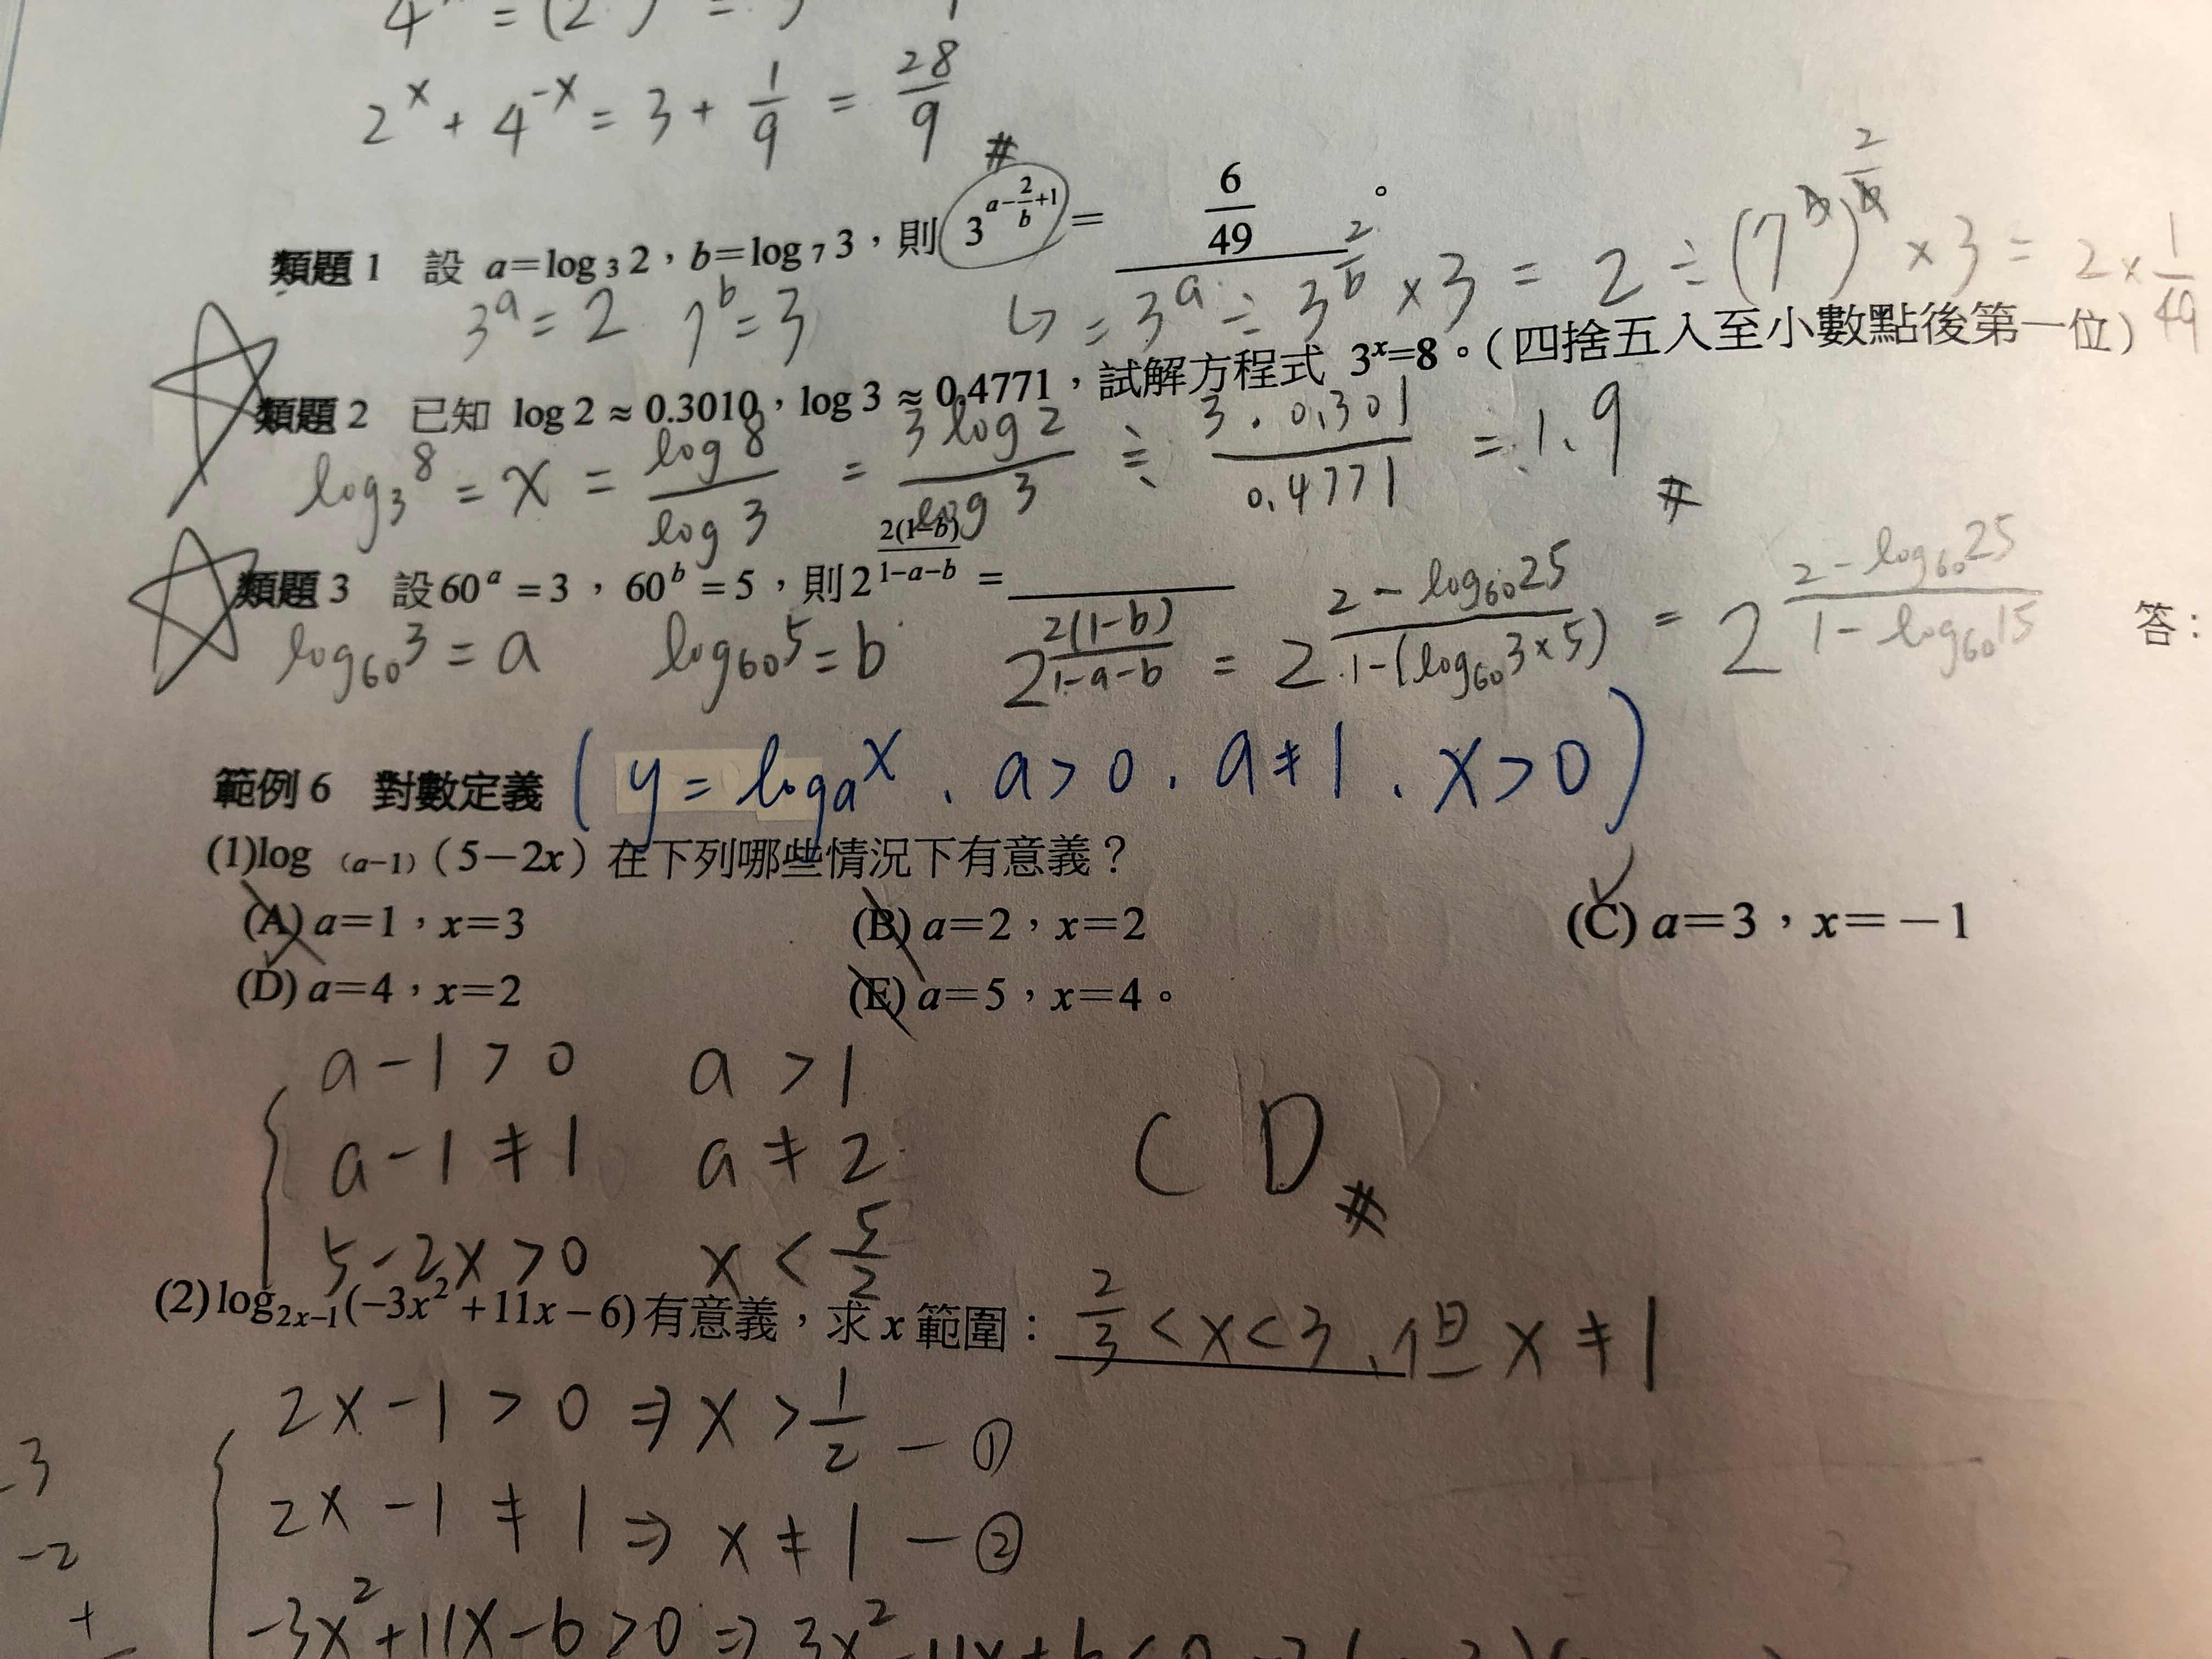 2^x + 4^{-x} = 3 + 1/9 = 28/9 #
類題 1 設 a=log_3 2，b=log_7 3，則 3^{a-2/b+1} = 6/49 。
3^a = 2 7^b = 3 ↳ = 3^a ÷ 3^{2/b} × 3 = 2 ÷ (7^b)^{2/b} × 3 = 2 × 1/49
類題 2 已知 log 2 ≈ 0.3010，log 3 ≈ 0.4771，試解方程式 3^x=8。（四捨五入至小數點後第一位）
log_3 8 = x = log 8 / log 3 = 3 log 2 / log 3 ≒ 3 · 0.301 / 0.4771 ≒ 1.9 #
類題 3 設 60^a = 3，60^b = 5，則 2^{2(1-b)/(1-a-b)} =
log_60 3 = a log_60 5 = b 2^{2(1-b)/(1-a-b)} = 2^{(2-log_60 25)/(1-(log_60 3×5))} = 2^{(2-log_60 25)/(1-log_60 15)} 答：
範例 6 對數定義 ( y = log_a x 、 a > 0 、 a ≠ 1 、 x > 0 )
(1)log （a−1）（5−2x）在下列哪些情況下有意義？
(A) a=1，x=3 (B) a=2，x=2 (C) a=3，x=−1
(D) a=4，x=2 (E) a=5，x=4。
a - 1 > 0 a > 1
a - 1 ≠ 1 a ≠ 2 C D #
5 - 2x > 0 x < 5/2
(2) log_{2x−1}(−3x²+11x−6)有意義，求 x 範圍： 2/3 < x < 3、但 x ≠ 1
2x - 1 > 0 ⇒ x > 1/2 — ①
2x - 1 ≠ 1 ⇒ x ≠ 1 — ②
-3x² + 11x - 6 > 0 ⇒ 3x² - 11x + 6 < 0